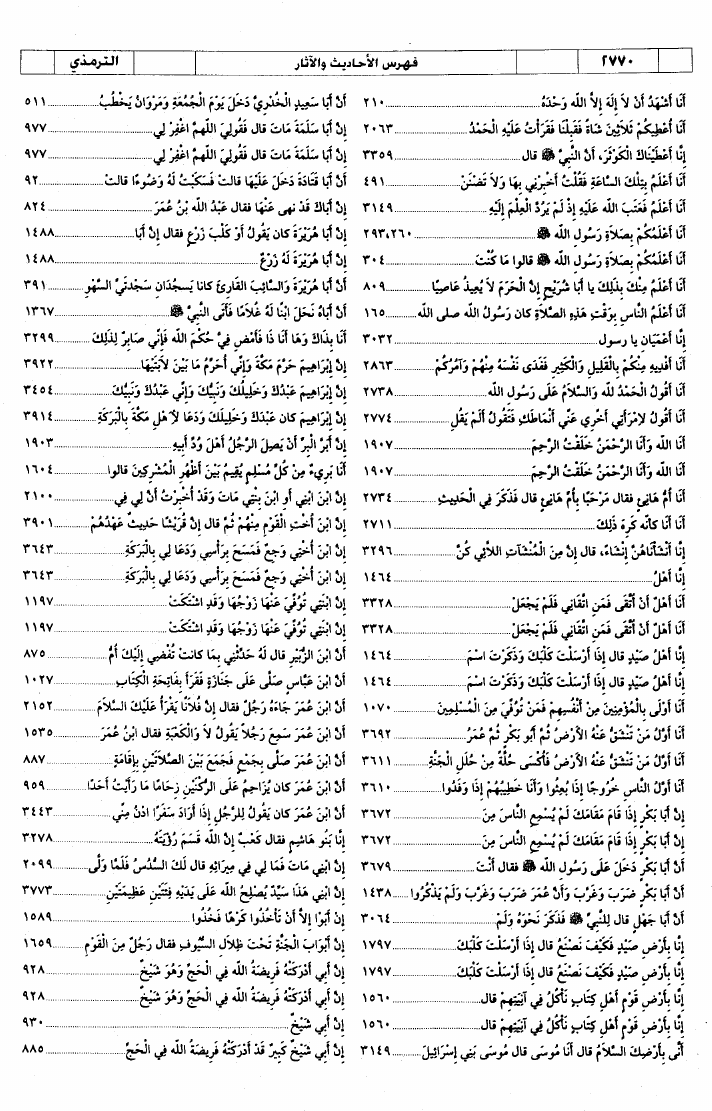 ٢٧٧٠ فهرس الأحاديث والآثار الترمذي
أَنَا أَشْهَدُ أَنْ لاَ إِلَهَ إِلاَّ الله وَحْدَهُ ٢١٠
أَنَا أُعْطِيكُمْ ثَلاَثِينَ شَاةً فَقَبِلْنَا فَقَرَأْتُ عَلَيْهِ الْحَمْدُ ٢٠٦٣
إِنَّا أَعْطَيْنَاكَ الْكَوْثَرَ، أَنَّ النَّبِيَّ ﷺ قال ٣٣٥٩
أَنَا أَعْلَمُ بِتِلْكَ السَّاعَةِ فَقُلْتُ أَخْبِرْنِي بِهَا وَلاَ تَضْنَنْ ٤٩١
أَنَا أَعْلَمُ فَعَتَبَ الله عَلَيْهِ إِذْ لَمْ يَرُدَّ الْعِلْمَ إِلَيْهِ ٣١٤٩
أَنَا أَعْلَمُكُمْ بِصَلاَةِ رَسُولِ الله ﷺ ٢٩٣،٢٦٠
أَنَا أَعْلَمُكُمْ بِصَلاَةِ رَسُولِ الله ﷺ قالوا مَا كُنْتَ ٣٠٤
أَنَا أَعْلَمُ مِنْكَ بِذَلِكَ يا أَبَا شُرَيْحٍ إِنَّ الْحَرَمَ لاَ يُعِيذُ عَاصِيًا ٨٠٩
أَنَا أَعْلَمُ النَّاسِ بِوَقْتِ هَذِهِ الصَّلاَةِ كان رَسُولُ الله صلى الله ١٦٥
إِنَّا أَعْمَيَان يا رسول ٣٠٣٢
أَنَا أَفْدِيهِ مِنْكُمْ بِالْقَلِيلِ وَالْكَثِيرِ فَفَدَى نَفْسَهُ مِنْهُمْ وَآمُرُكُمْ ٢٨٦٣
أَنَا أَقُولُ الْحَمْدُ لله وَالسَّلاَمُ عَلَى رَسُولِ الله ٢٧٣٨
أَنَا أَقُولُ لاِمْرَأَتِي أَخِّرِي عَنِّي أَنْمَاطَكِ فَتَقُولُ أَلَمْ يَقُلِ ٢٧٧٤
أَنَا الله وَأَنَا الرَّحْمَنُ خَلَقْتُ الرَّحِمَ ١٩٠٧
أَنَا الله وَأَنَا الرَّحْمَنُ خَلَقْتُ الرَّحِمَ ١٩٠٧
أَنَا أُمُّ هَانِئٍ فقال مَرْحَبًا بِأُمِّ هَانِئٍ قال فَذَكَرَ فِي الْحَدِيثِ ٢٧٣٤
أَنَا أَنَا كأنَّه كَرِهَ ذَلِكَ ٢٧١١
إِنَّا أَنْشَأْنَاهُنَّ إِنْشَاءً، قال إِنَّ مِنَ الْمُنْشَآتِ اللاَّئِي كُنَّ ٣٢٩٦
إِنَّا أَهْلُ ١٤٦٤
أَنَا أَهْلٌ أَنْ أُتَّقَى فَمَنِ اتَّقَانِي فَلَمْ يَجْعَلْ ٣٣٢٨
أَنَا أَهْلٌ أَنْ أُتَّقَى فَمَنِ اتَّقَانِي فَلَمْ يَجْعَلْ ٣٣٢٨
إِنَّا أَهْلُ صَيْدٍ قال إِذَا أَرْسَلْتَ كَلْبَكَ وَذَكَرْتَ اسْمَ ١٤٦٤
إِنَّا أَهْلُ صَيْدٍ قال إِذَا أَرْسَلْتَ كَلْبَكَ وَذَكَرْتَ اسْمَ ١٤٦٤
أَنَا أَوْلَى بِالْمُؤْمِنِينَ مِنْ أَنْفُسِهِمْ فَمَنْ تُوُفِّيَ مِنَ الْمُسْلِمِينَ ١٠٧٠
أَنَا أَوَّلُ مَنْ تَنْشَقُّ عَنْهُ الأَرْضُ ثُمَّ أبو بَكْرٍ ثُمَّ عُمَرُ ٣٦٩٢
أَنَا أَوَّلُ مَنْ تَنْشَقُّ عَنْهُ الأَرْضُ فَأُكْسَى حُلَّةً مِنْ حُلَلِ الْجَنَّةِ ٣٦١١
أَنَا أَوَّلُ النَّاسِ خُرُوجًا إِذَا بُعِثُوا وَأَنَا خَطِيبُهُمْ إِذَا وَفَدُوا ٣٦١٠
إِنَّ أَبَا بَكْرٍ إِذَا قَامَ مَقَامَكَ لَمْ يُسْمِعِ النَّاسَ مِنَ ٣٦٧٢
إِنَّ أَبَا بَكْرٍ إِذَا قَامَ مَقَامَكَ لَمْ يُسْمِعِ النَّاسَ مِنَ ٣٦٧٢
أَنَّ أَبَا بَكْرٍ دَخَلَ عَلَى رَسُولِ الله ﷺ فقال أَنْتَ ٣٦٧٩
أَنَّ أَبَا بَكْرٍ ضَرَبَ وَغَرَّبَ وَأَنَّ عُمَرَ ضَرَبَ وَغَرَّبَ وَلَمْ يَذْكُرُوا ١٤٣٨
أَنَّ أَبَا جَهْلٍ قال لِلنَّبِيِّ ﷺ فَذَكَرَ نَحْوَهُ وَلَمْ ٣٠٦٤
إِنَّا بِأَرْضِ صَيْدٍ فَكَيْفَ نَصْنَعُ قال إِذَا أَرْسَلْتَ كَلْبَكَ ١٧٩٧
إِنَّا بِأَرْضِ صَيْدٍ فَكَيْفَ نَصْنَعُ قال إِذَا أَرْسَلْتَ كَلْبَكَ ١٧٩٧
إِنَّا بِأَرْضِ قَوْمٍ أَهْلِ كِتَابٍ نَأْكُلُ فِي آنِيَتِهِمْ قال ١٥٦٠
إِنَّا بِأَرْضِ قَوْمٍ أَهْلِ كِتَابٍ نَأْكُلُ فِي آنِيَتِهِمْ قال ١٥٦٠
أَنَّى بِأَرْضِكَ السَّلاَمُ قال أَنَا مُوسَى قال مُوسَى بَنِي إِسْرَائِيلَ ٣١٤٩
أَنَّ أَبَا سَعِيدٍ الْخُدْرِيَّ دَخَلَ يَوْمَ الْجُمُعَةِ وَمَرْوَانُ يَخْطُبُ ٥١١
إِنَّ أَبَا سَلَمَةَ مَاتَ قال فَقُولِيَ اللَّهمَّ اغْفِرْ لِي ٩٧٧
إِنَّ أَبَا سَلَمَةَ مَاتَ قال فَقُولِيَ اللَّهمَّ اغْفِرْ لِي ٩٧٧
أَنَّ أَبَا قَتَادَةَ دَخَلَ عَلَيْهَا قالت فَسَكَبْتُ لَهُ وَضُوءًا قالت ٩٢
إِنَّ أَبَاكَ قَدْ نهى عَنْهَا فقال عَبْدُ الله بْنُ عُمَرَ ٨٢٤
إِنَّ أَبَا هُرَيْرَةَ كان يَقُولُ أَوْ كَلْبَ زَرْعٍ فقال إِنَّ أَبَا ١٤٨٨
إِنَّ أَبَا هُرَيْرَةَ لَهُ زَرْعٌ ١٤٨٨
أَنَّ أَبَا هُرَيْرَةَ وَالسَّائِبَ القَارِئَ كانا يَسجُدَانِ سَجْدَتَيِ السَّهْوِ ٣٩١
أَنَّ أَبَاهُ نَحَلَ ابْنًا لَهُ غُلاَمًا فَأَتَى النَّبِيَّ ﷺ ١٣٦٧
أَنَا بِذَاكَ وَهَا أَنَا ذَا فَأَمْضِ فِيَّ حُكْمَ الله فَإِنِّي صَابِرٌ لِذَلِكَ ٣٢٩٩
إِنَّ إِبْرَاهِيمَ حَرَّمَ مَكَّةَ وَإِنِّي أُحَرِّمُ مَا بَيْنَ لاَبَتَيْهَا ٣٩٢٢
إِنَّ إِبْرَاهِيمَ عَبْدُكَ وَخَلِيلُكَ وَنَبِيُّكَ وَإِنِّي عَبْدُكَ وَنَبِيُّكَ ٣٤٥٤
إِنَّ إِبْرَاهِيمَ كان عَبْدَكَ وَخَلِيلَكَ وَدَعَا لأَهْلِ مَكَّةَ بِالْبَرَكَةِ ٣٩١٤
إِنَّ أَبَرَّ الْبِرِّ أَنْ يَصِلَ الرَّجُلُ أَهْلَ وُدِّ أَبِيهِ ١٩٠٣
أَنَا بَرِيءٌ مِنْ كُلِّ مُسْلِمٍ يُقِيمُ بَيْنَ أَظْهُرِ الْمُشْرِكِينَ قالوا ١٦٠٤
إِنَّ ابْنَ ابْنِي أو ابْنَ بِنْتِي مَاتَ وَقَدْ أُخْبِرْتُ أَنَّ لِي فِي ٢١٠٠
إِنَّ ابْنَ أُخْتِ الْقَوْمِ مِنْهُمْ ثُمَّ قال إِنَّ قُرَيْشًا حَدِيثٌ عَهْدُهُمْ ٣٩٠١
إِنَّ ابْنَ أُخْتِي وَجِعٌ فَمَسَحَ بِرَأْسِي وَدَعَا لِي بِالْبَرَكَةِ ٣٦٤٣
إِنَّ ابْنَ أُخْتِي وَجِعٌ فَمَسَحَ بِرَأْسِي وَدَعَا لِي بِالْبَرَكَةِ ٣٦٤٣
إِنَّ ابْنَتِي تُوُفِّيَ عَنْهَا زَوْجُهَا وَقَدِ اشْتَكَتْ ١١٩٧
إِنَّ ابْنَتِي تُوُفِّيَ عَنْهَا زَوْجُهَا وَقَدِ اشْتَكَتْ ١١٩٧
أَنَّ ابْنَ الزُّبَيْرِ قال لَهُ حَدِّثْنِي بِمَا كانت تُفْضِي إِلَيْكَ أُمُّ ٨٧٥
أَنَّ ابْنَ عَبَّاسٍ صَلَّى عَلَى جَنَازَةٍ فَقَرَأَ بِفَاتِحَةِ الْكِتَابِ ١٠٢٧
أَنَّ ابْنَ عُمَرَ جَاءَهُ رَجُلٌ فقال إِنَّ فُلاَنًا يَقْرَأُ عَلَيْكَ السَّلاَمَ ٢١٥٢
أَنَّ ابْنَ عُمَرَ سَمِعَ رَجُلاً يَقُولُ لاَ وَالْكَعْبَةِ فقال ابْنُ عُمَرَ ١٥٣٥
أَنَّ ابْنَ عُمَرَ صَلَّى بِجَمْعٍ فَجَمَعَ بَيْنَ الصَّلاَتَيْنِ بِإِقَامَةٍ ٨٨٧
أَنَّ ابْنَ عُمَرَ كان يُزَاحِمُ عَلَى الرُّكْنَيْنِ زِحَامًا مَا رَأَيْتُ أَحَدًا ٩٥٩
أَنَّ ابْنَ عُمَرَ كان يَقُولُ لِلرَّجُلِ إِذَا أَرَادَ سَفَرًا ادْنُ مِنِّي ٣٤٤٣
إِنَّا بَنُو هَاشِمٍ فقال كَعْبٌ إِنَّ الله قَسَمَ رُؤْيَتَهُ ٣٢٧٨
إِنَّ ابْنِي مَاتَ فَمَا لِي فِي مِيرَاثِهِ قال لَكَ السُّدُسُ فَلَمَّا وَلَّى ٢٠٩٩
إِنَّ ابْنِي هَذَا سَيِّدٌ يُصْلِحُ الله عَلَى يَدَيْهِ فِئَتَيْنِ عَظِيمَتَيْنِ ٣٧٧٣
إِنْ أَبَوْا إِلاَّ أَنْ تَأْخُذُوا كَرْهًا فَخُذُوا ١٥٨٩
إِنَّ أَبْوَابَ الْجَنَّةِ تَحْتَ ظِلاَلِ السُّيُوفِ فقال رَجُلٌ مِنَ الْقَوْمِ ١٦٥٩
إِنَّ أَبِي أَدْرَكَتْهُ فَرِيضَةُ الله فِي الْحَجِّ وَهُوَ شَيْخٌ ٩٢٨
إِنَّ أَبِي أَدْرَكَتْهُ فَرِيضَةُ الله فِي الْحَجِّ وَهُوَ شَيْخٌ ٩٢٨
إِنَّ أَبِي شَيْخٌ ٩٣٠
إِنَّ أَبِي شَيْخٌ كَبِيرٌ قَدْ أَدْرَكَتْهُ فَرِيضَةُ الله فِي الْحَجِّ ٨٨٥